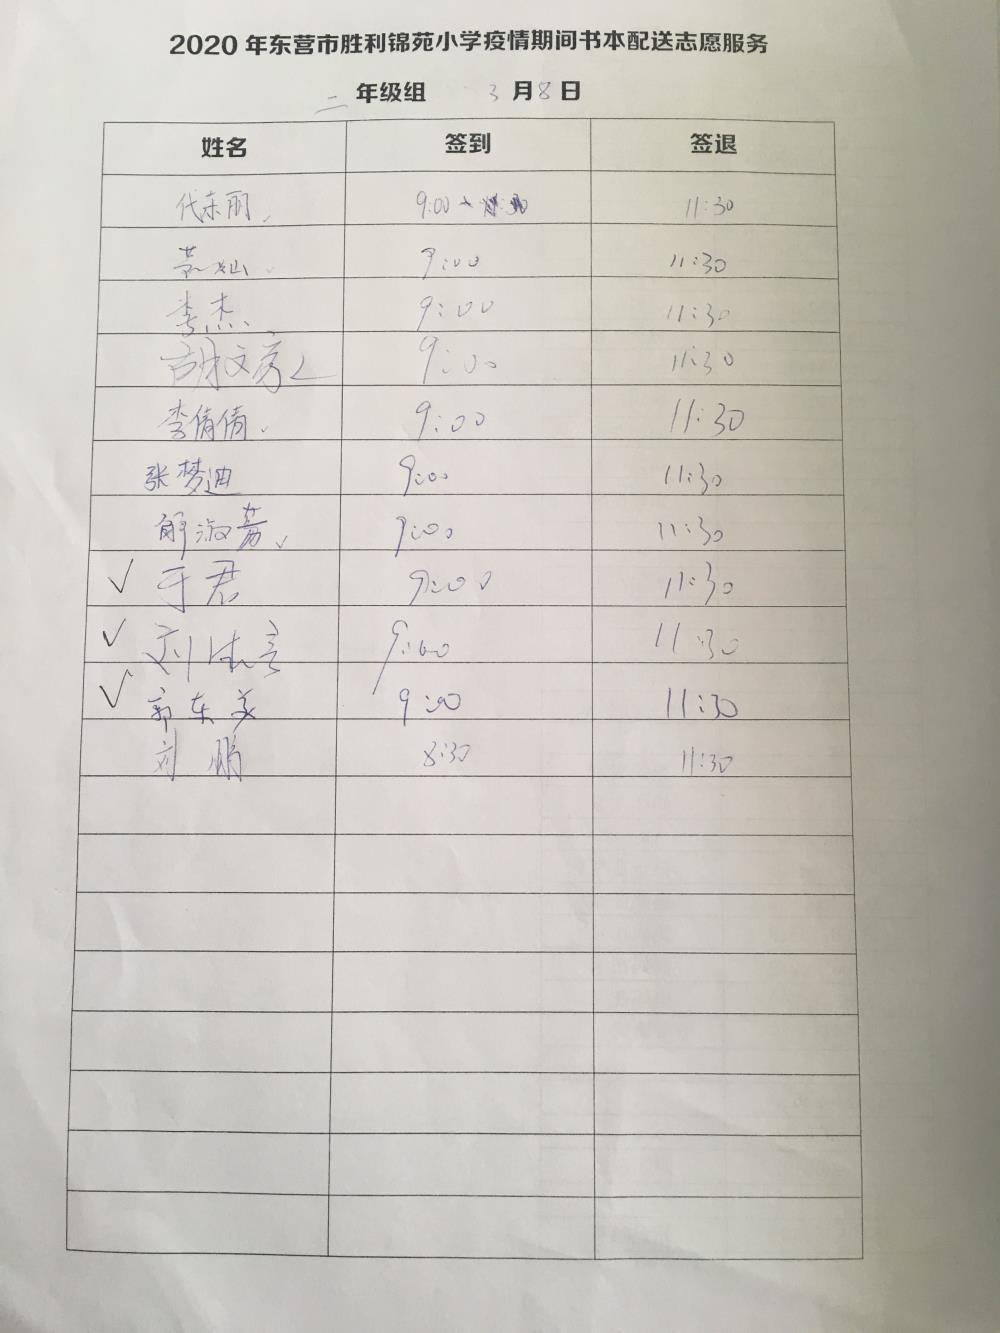 2020 年东营市胜利锦苑小学疫情期间书本配送志愿服务
二 年级组 3 月 8 日
姓名 签到 签退
代东丽 9:00 11:30
黄灿 9:00 11:30
李杰 9:00 11:30
胡文芳 9:00 11:30
李倩倩 9:00 11:30
张梦迪 9:00 11:30
解淑芳 9:00 11:30
✓ 于君 9:00 11:30
✓ 刘 9:00 11:30
✓ 郭东美 9:00 11:30
刘鹏 8:30 11:30